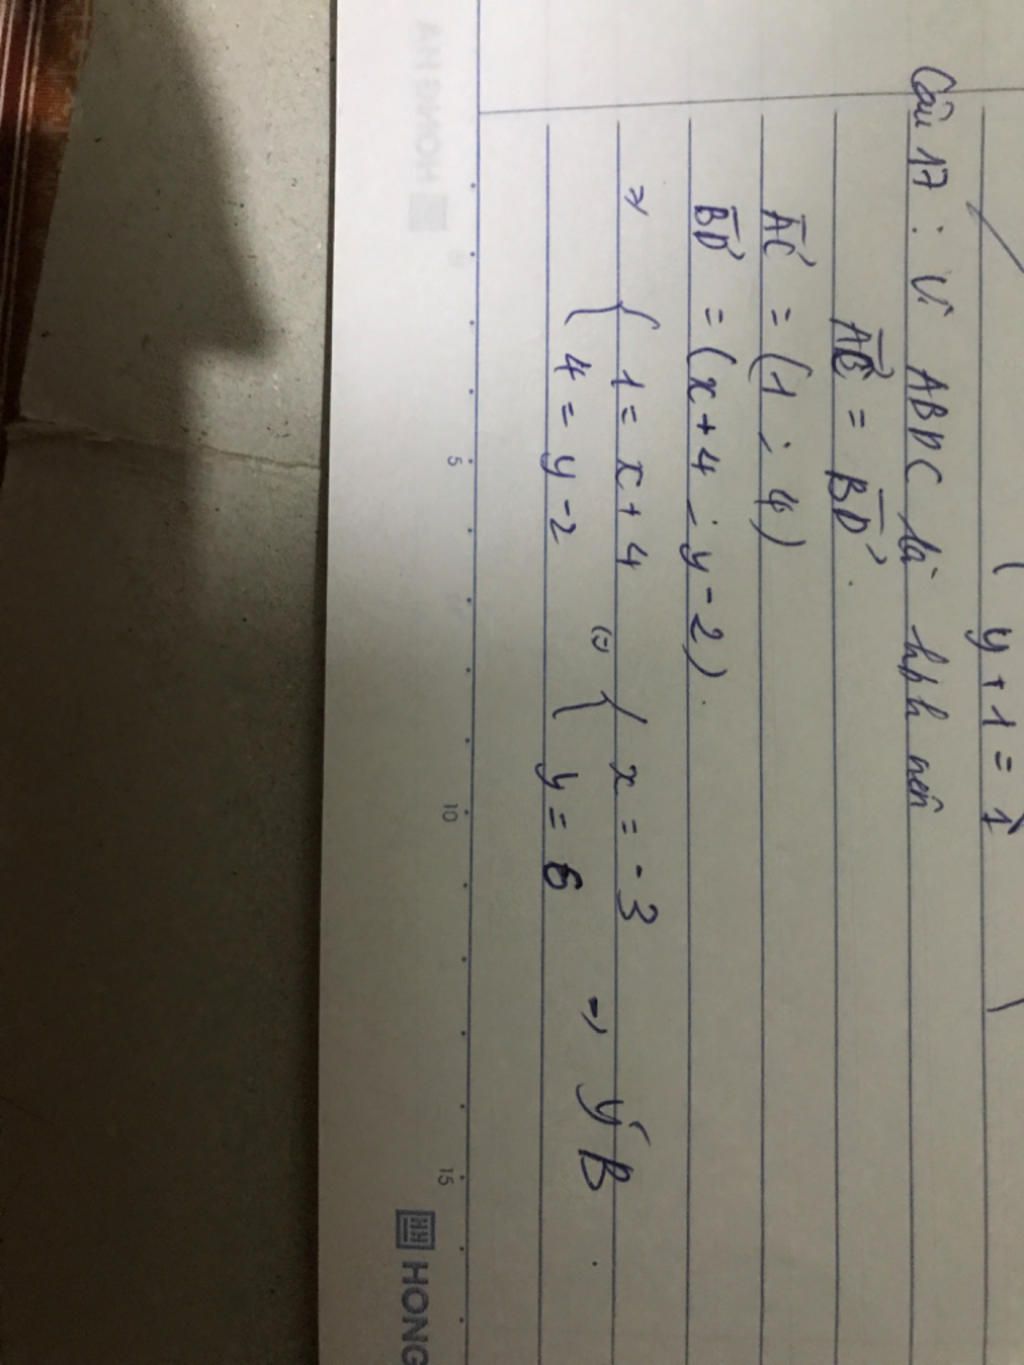 y + 1 = 1
Câu 17 : Vì ABDC là hbh nên
AC = BD .
AC = (1 ; 4)
BD = (x + 4 ; y - 2) .
=> { 1 = x + 4 (=) { x = -3
4 = y - 2 y = 6 => Ý B .
5 10 15
HONG HA
HH HONG